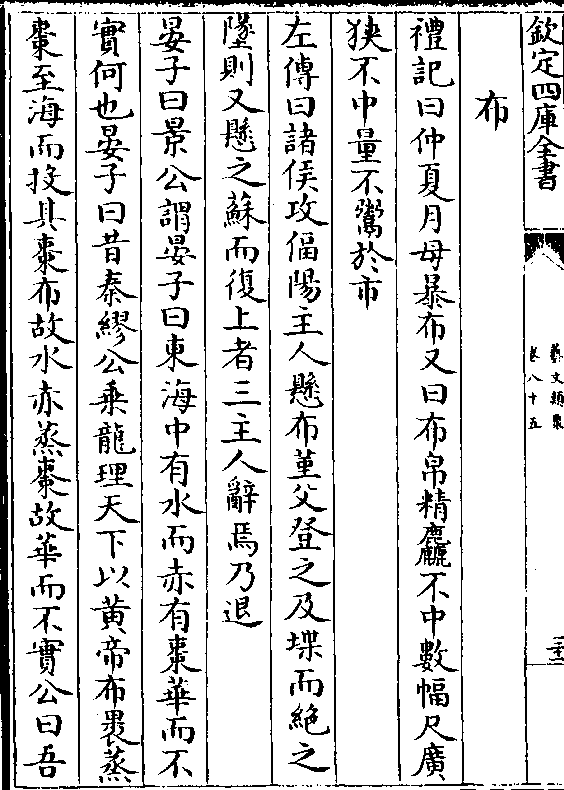 欽定四庫全書
藝文類聚
卷八十五
三十二
布
禮記曰仲夏月毋暴布又曰布帛精麤不中數幅尺廣
狹不中量不鬻於市
左傳曰諸侯攻偪陽主人懸布堇父登之及堞而絶之
墜則又懸之蘇而復上者三主人辭焉乃退
晏子曰景公謂晏子曰東海中有水而赤有棗華而不
實何也晏子曰昔秦繆公乗龍理天下以黄帝布裹蒸
棗至海而投其棗布故水赤蒸棗故華而不實公曰吾